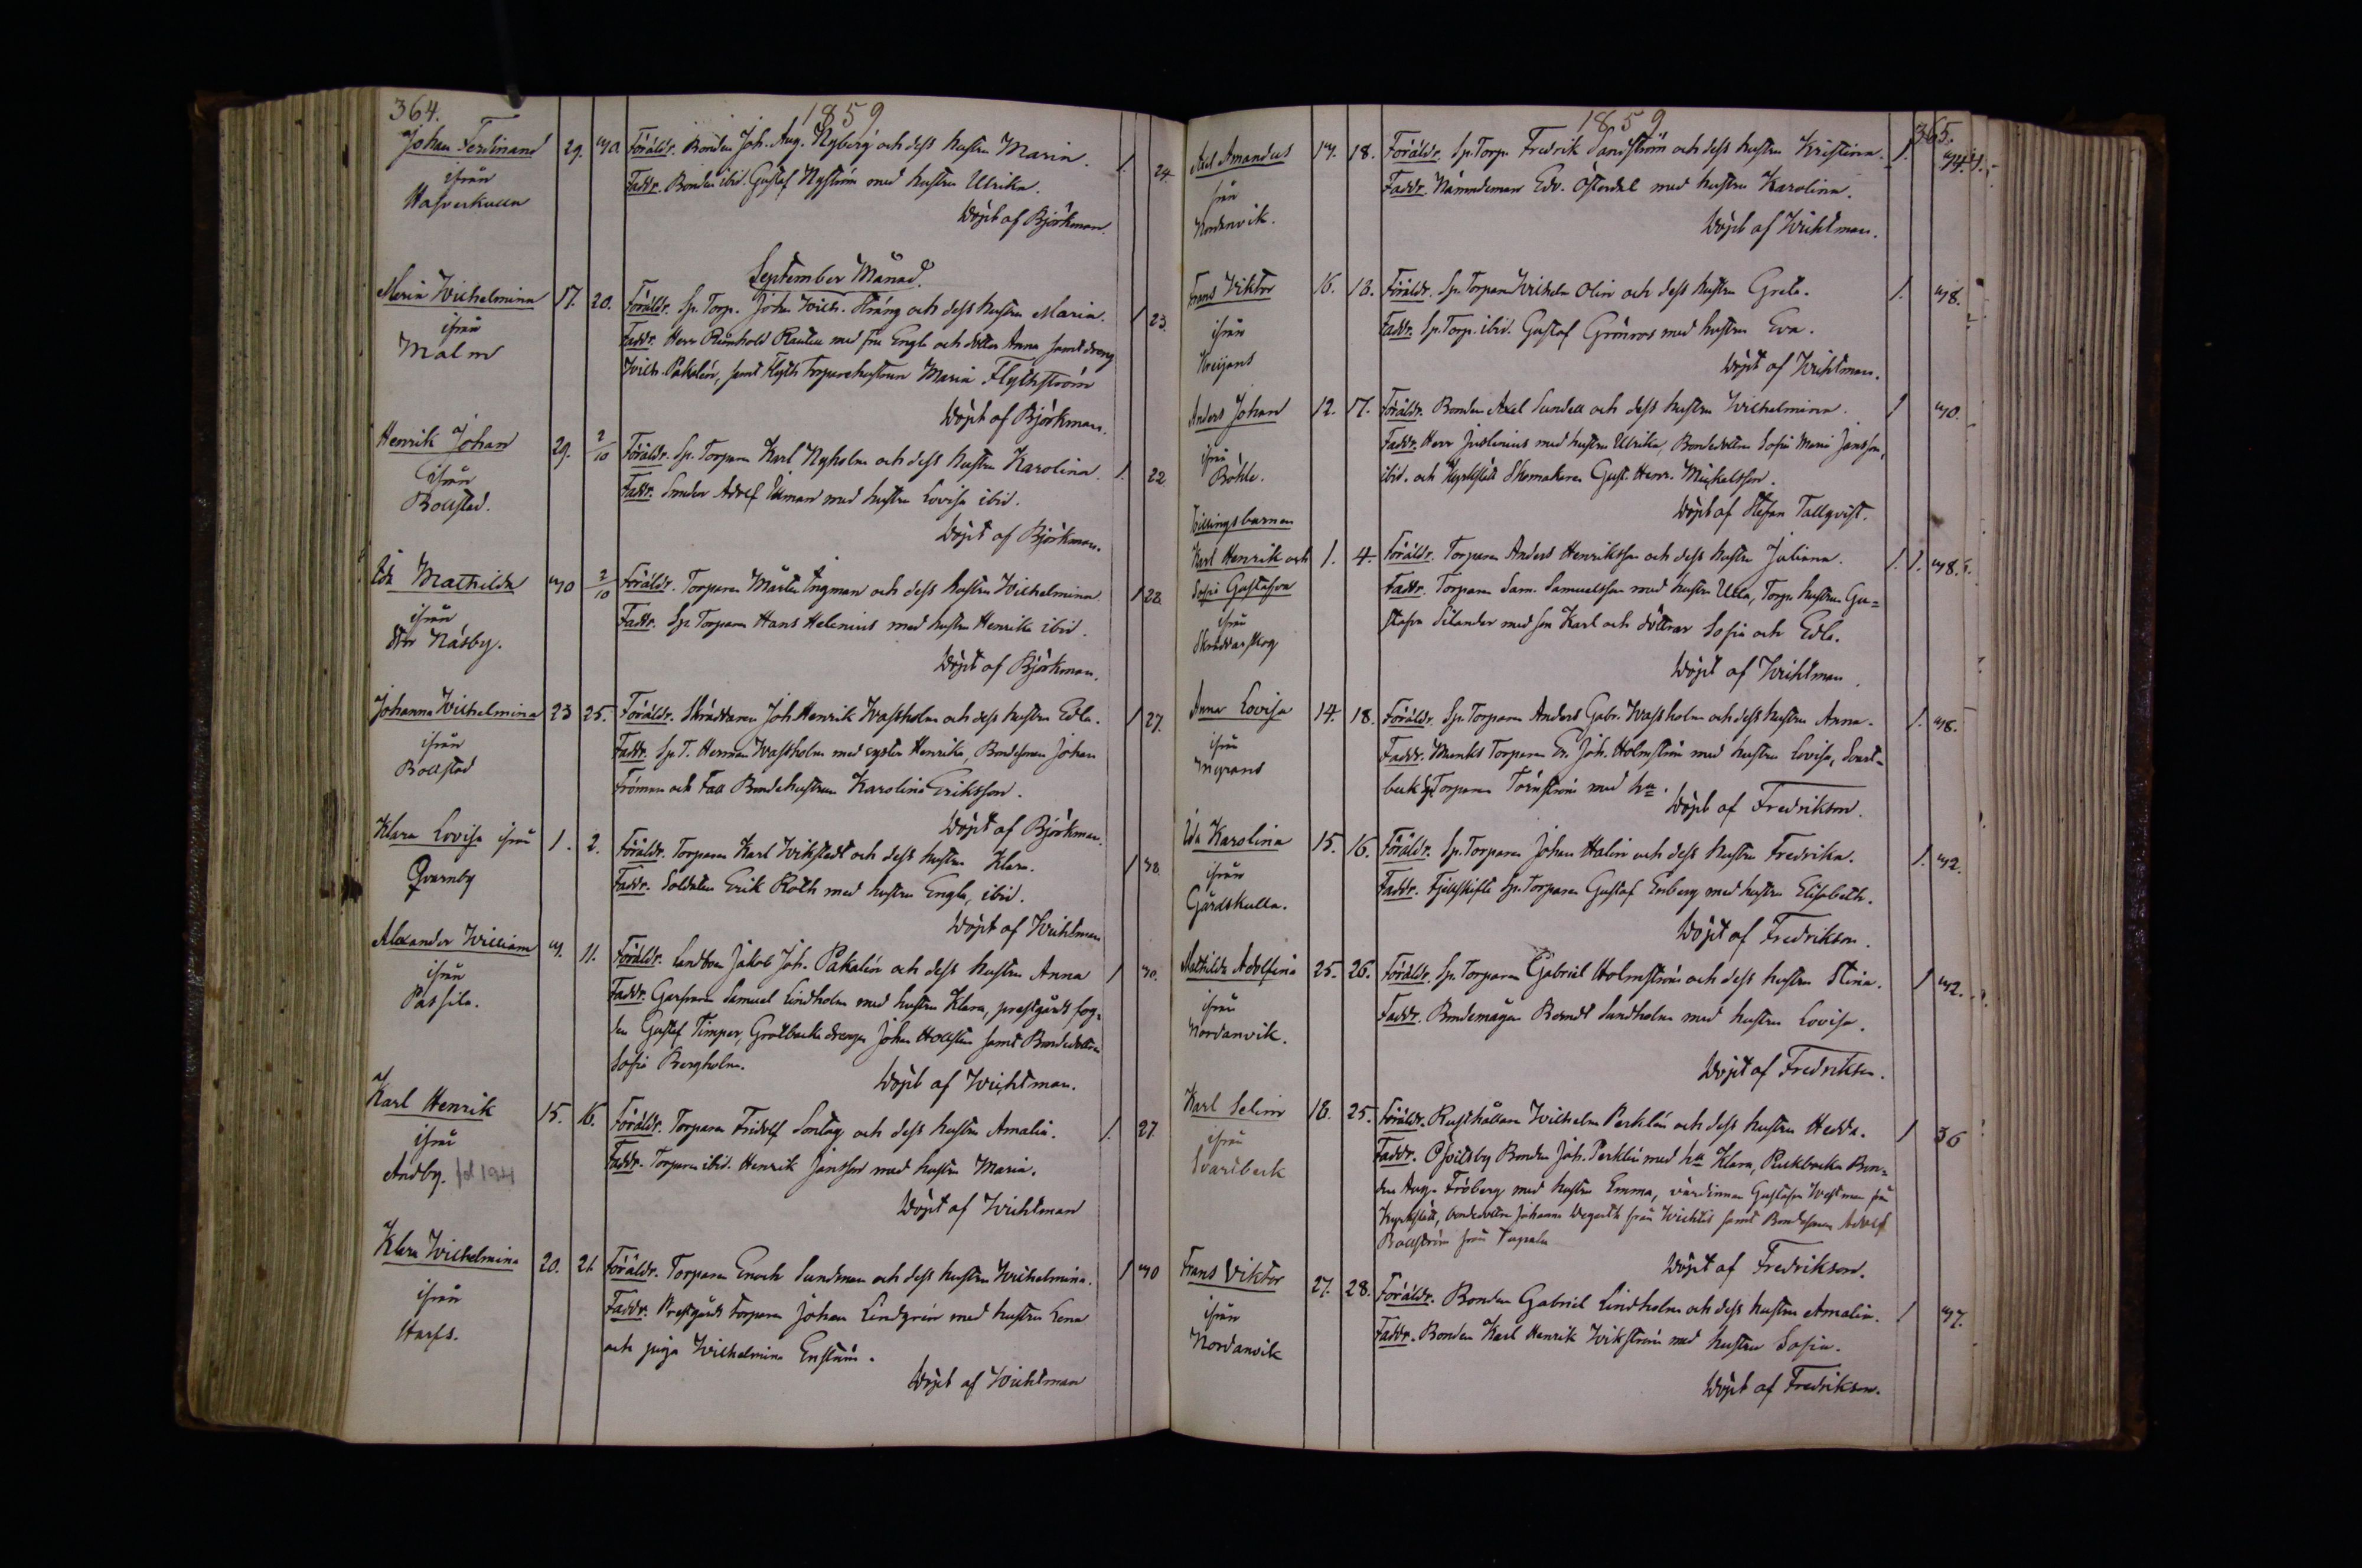 364.
1859
Johan Ferdinand 29. 30 Föräldr. Bonden Joh. Aug. Nyberg och dess hustru Maria. 1. 24.
ifrån Faddr. Bonden ibid. Gustaf Nyström med hustru Ulrika.
Döpt af Björkman.
September Månad.
Maria Wilhelmina 17. 20. Föräldr. Sp. Torp. Johan Wilh. Sträng och dess hustru Maria. 1 23.
ifrån Faddr. Herr Reinhold med fru Engla och dotter Anna samt dreng
Malm Wilh. Påkalén, samt Torparehustrun Maria Flythström
Döpt af Björkman.
Henrik Johan 29. 2/10 Föräldr. Sp. Torparen Karl Nyholm och dess hustru Karolina. 1. 22
ifrån Faddr. Smeden Adolf Ekman med hustru Lovisa ibid.
Bollstad.
Döpt af Björkman.
Ida Mathilda 30 2/10 Föräldr. Torparen Mårten Ingman och dess hustru Wilhelmina. 1 22
ifrån Faddr. Sp. Torparen Hans Helenius med hustru Henrika ibid.
Stor Näsby.
Döpt af Björkman.
Johanna Wilhelmina 23 25. Föräldr. Skräddaren Joh. Henrik Wassholm och dess hustru Edla. 1 27.
ifrån Faddr. Sp. T. Herman Wassholm med syster Henrika, Bondesonen Johan
Bollstad Fröman och Fall Bondehustrun Karolina Eriksson.
Döpt af Björkman.
Klara Lovisa ifrån 1. 2. Föräldr. Torparen Karl Wikstedt och dess hustru Klara. 1 38
Qvarnby Faddr. Soldaten Erik Roth med hustru Engla, ibid.
Döpt af Wichtman
Alexander William 9. 11. Föräldr. Landbon Jakob Joh. Påkalén och dess hustru Anna 1 30.
ifrån Faddr. Garfvaren Samuel Lindholm med hustru Klara, prestgårds fog-
Passila. den Gustaf Timper, drengen Johan Hollsten samt Bondedottren
Sofia Bergholm.
Döpt af Wichtman.
Karl Henrik 15. 16. Föräldr. Torparen Fridolf Sontag och dess hustru Amalia. 1. 27.
ifrån Faddr. Torparen ibid. Henrik Jansson med hustru Maria.
Andby.
Döpt af Wichtman
Klara Wilhelmina 20. 21. Föräldr. Torparen Enoch Sundman och dess hustru Wilhelmina. 1 30
ifrån Faddr. Prestgårds torparen Johan Lindgrén med hustru Lena
Harfs. och piga Wilhelmina Enström.
Döpt af Wichtman
365.
1859
Axel Amandus 17. 18. Föräldr. Sp. Torp. Fredrik Sandström och dess hustru Kristina. 1.
från Faddr. Nämndeman Edv. Österdal med hustru Karolina.
Nordanvik.
Döpt af Wichtman.
Frans Viktor 16. 18. Föräldr. Sp. Torparen Wilhelm Olin och dess hustru Greta. 1. 38.
ifrån Faddr. Sp. Torp. ibid. Gustaf Grönroos med hustru Eva.
Döpt af Wichtman.
Anders Johan 12. 17. Föräldr. Bonden Axel Sundell och dess hustru Wilhelmina. 1 30.
ifrån Faddr. Herr Juslenius med hustru Ulrika, Bondedottren Sofia Maria Jansson,
Böhle. ibid. och Kyrkslätt Skomakaren Gust. Henr. Mickelsson.
Döpt af Stefan Tallqvist.
Tvillingsbarnen
Karl Henrik och 1. 4. Föräldr. Torparen Anders Henriksson och dess hustru Juliana. 1. 1. 38.
Sofia Gustafva Faddr. Torparen Sam. Samuelsson med hustru Ulla, Torp. hustrun Gu-
ifrån stafva Silander med son Karl och döttrar Sofia och Edla.
Skräddarskog
Döpt af Wichtman.
Anna Lovisa 14. 18. Föräldr. Sp. Torparen Anders Gabr. Wassholm och dess hustru Anna. 1. 38.
ifrån Faddr. Munks Torparen Joh. Holmström med hustru Lovisa, Svart-
Ingvars beck Sp. Torparen Törnström med hu.
Döpt af Fredrikson.
Ida Karolina 15. 16. Föräldr. Sp. Torparen Johan Malin och dess hustru Fredrika. 1. 32.
ifrån Faddr. Fjellskifts Sp. Torparen Gustaf Enberg med hustru Elisabeth.
Gårdskulla.
Döpt af Fredrikson.
Mathilda Adolfina 25. 26. Föräldr. Sp. Torparen Gabriel Holmström och dess hustru Stina. 1 32.
ifrån Faddr. Bondemågen Berndt Sundholm med hustru Lovisa.
Nordanvik.
Döpt af Fredrikson.
Karl Selim 18. 25. Föräldr. Rusthållaren Wilhelm Perklén och dess hustru Hedda. 1 36
ifrån Faddr. Bonden Joh. Perklén med hu Klara, Bon-
Svartbeck den Aug. Fröberg med hustru Emma, värdinnan Gustafva Westman från
Kyrkslätt, bondedottren Johanna Wegerth från Wichtis samt Bondesonen Adolf
Bollström från
Döpt af Fredrikson.
Frans Viktor 27. 28. Föräldr. Bonden Gabriel Lindholm och dess hustru Amalia. 1 37.
ifrån Faddr. Bonden Karl Henrik Wikström med hustru Sofia.
Nordanvik
Döpt af Fredrikson.